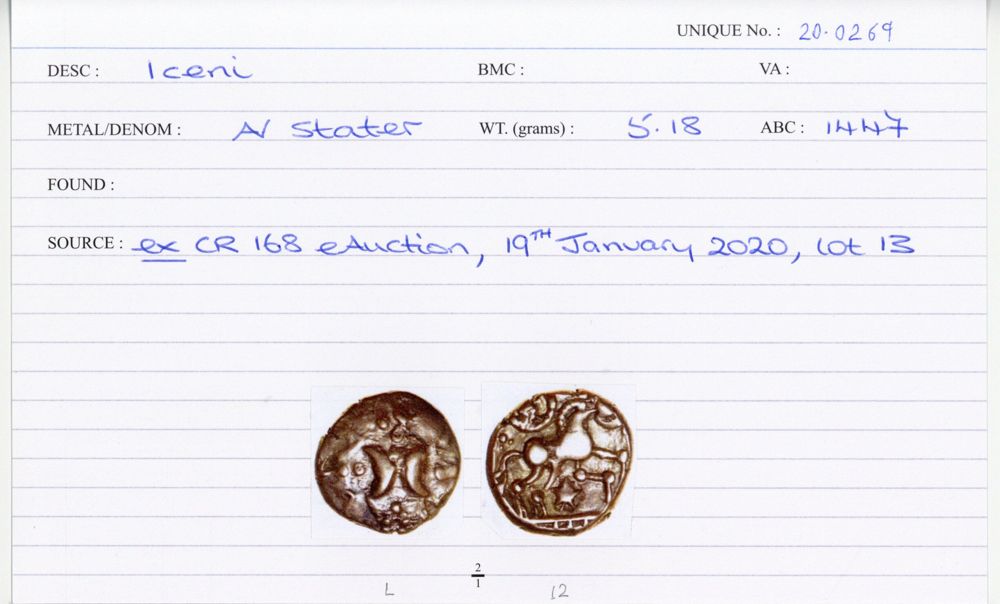 UNIQUE No. : 20.0269
DESC : Iceni BMC : VA :
METAL/DENOM : AV Stater WT. (grams) : 5.18 ABC : 1447
FOUND :
SOURCE : ex CR 168 eAuction, 19TH January 2020, lot 13
2
1
L 12